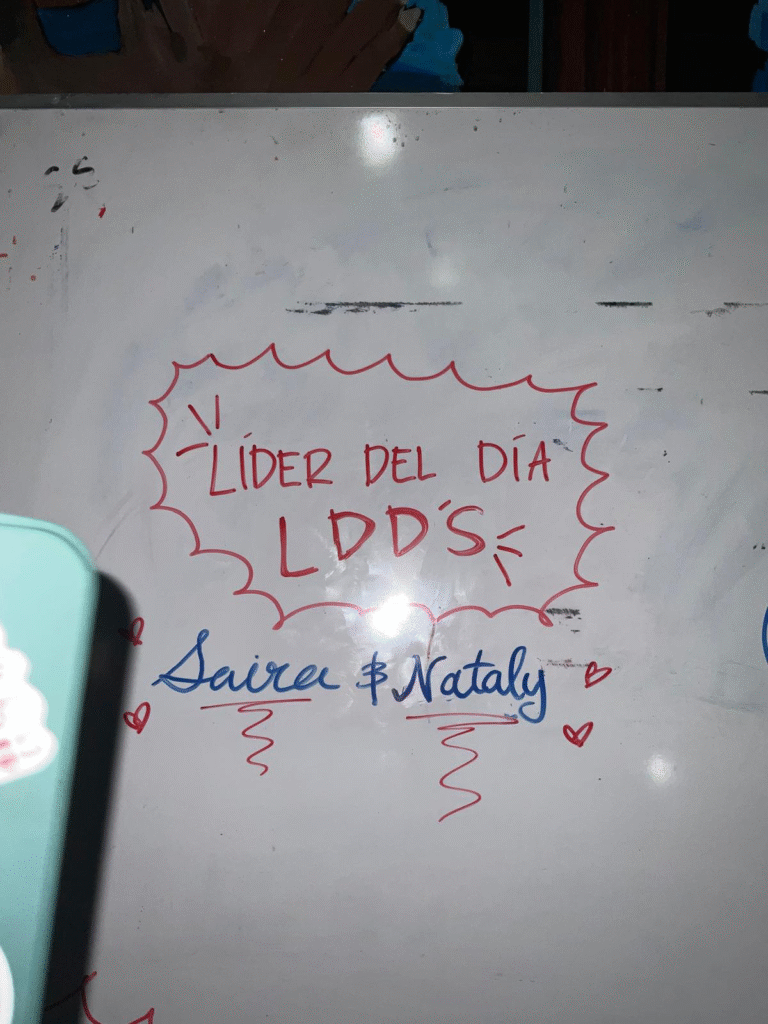 LÍDER DEL DÍA
LDD'S
Saira & Nataly